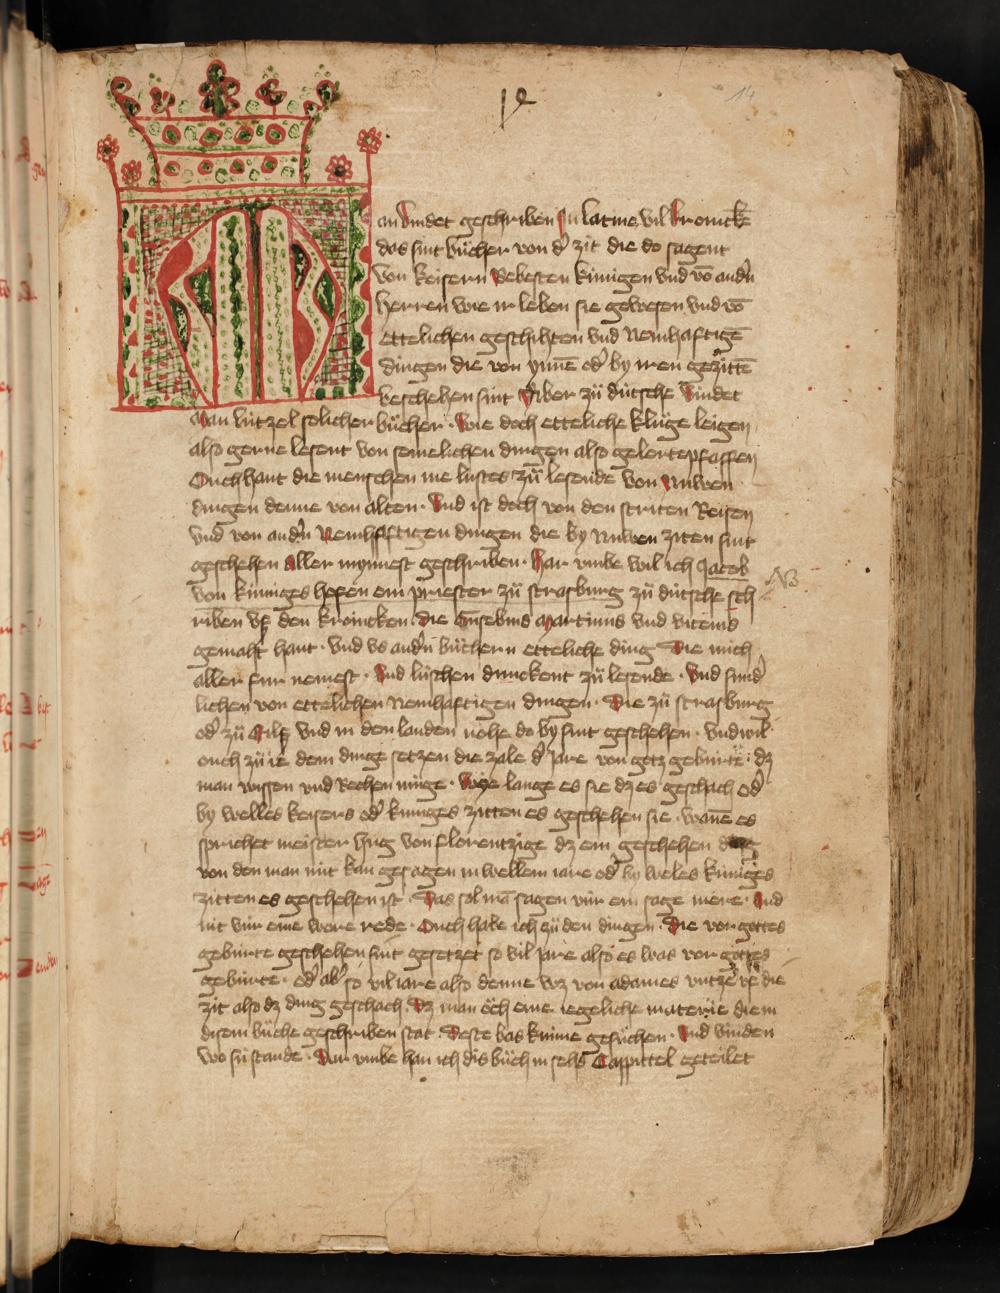 14
Man vindet geschriben jn latine vil kronicke
das sint bücher von d' zit die do sagent
von keisern Bebesten künigen vnd vō and'n
herren wie ir leben sie gewesen vnd vō
ettelichen geschihten vnd Nemhaftigē
dingen die von ynnē od' by iren gezittē
beschehen sint Aber zü dütsche vindet
Man lützel solicher bücher · Wie doch etteliche klüge leigen
also gerne lesent von semelichen dingen also gelerte pfaffen
Ouch hant die menschen me lustes zü lesende von Nuwen
dingen denne von alten · Vnd ist doch von den striten Reisen
vnd von and'n Nemhafftigen dingen die by Nuwen ziten sint
geschehen Aller mynnest geschriben · Har vmbe wil ich Jacob
von küniges hofen ein priester zü strasburg zü dütsche sch
riben vß den kronicken die Eusebius Martinus vnd vicencius
gemaht hant · vnd vs and'n büchern etteliche ding Die mich
aller fur nemest · Vnd lüschen dunckent zü lesende · Vnd sund'
lichen von ettelichen Nemhaftigen dingen · Die zü strasburg
od' zü Eilsß vnd in den landen nohe do by sint geschehen · vnd wil
ouch zü ie dem dinge setzen die zale d' Jare von gotz gebürte · dz
man wissen vnd Rechen müge · Wye lange es sie dz es geschach od'
by welles keisers od' küniges zitten es geschehen sie · wanē es
sprichet meister hug von florentzige dz ein geschehen ding
von den man nüt kan gesagen in wellem iare od' by weles küniges
zitten es geschehen ist · Das sol mā sagen vür ein sage mere · Vnd
nit vür eine wore rede · Ouch habe ich zü den dingen · Die vor gottes
gebürte geschehen sint gesetzet so vil jare also es was vor gottes
gebürte · od' ab' so vil iare also denne wz von adames vntze vf die
zit also dz ding geschach · Dz man öch eine iegeliche materie die in
disem büche geschriben stat · Deste bas künne gesüchen · Vnd vinden
wo sü stande · Dar vmbe han ich dis büch in sehs Cappittel geteilet
NB